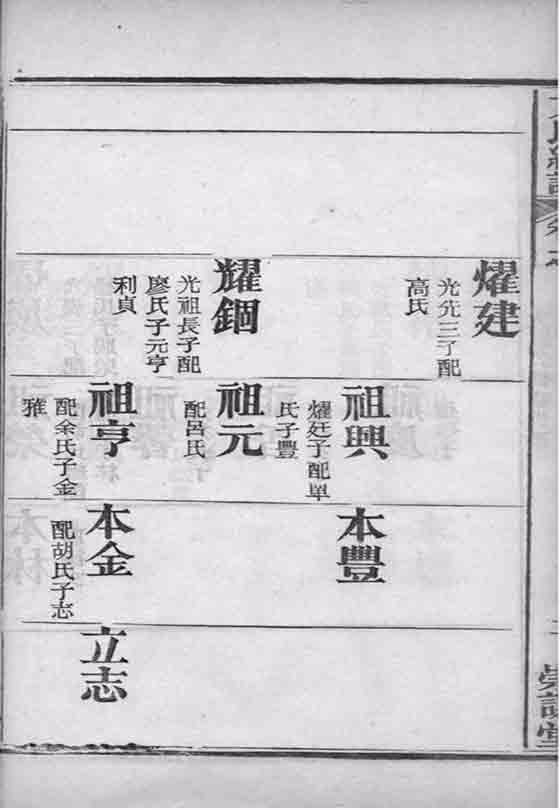 燿建
光先三子配
高氏
耀錮
光祖長子配
廖氏子元亨
利貞
祖興
燿廷子配單
氏子豐
祖元
配呂氏
祖亨
配余氏子金
雅
本豐
本金
配胡氏子志
立志